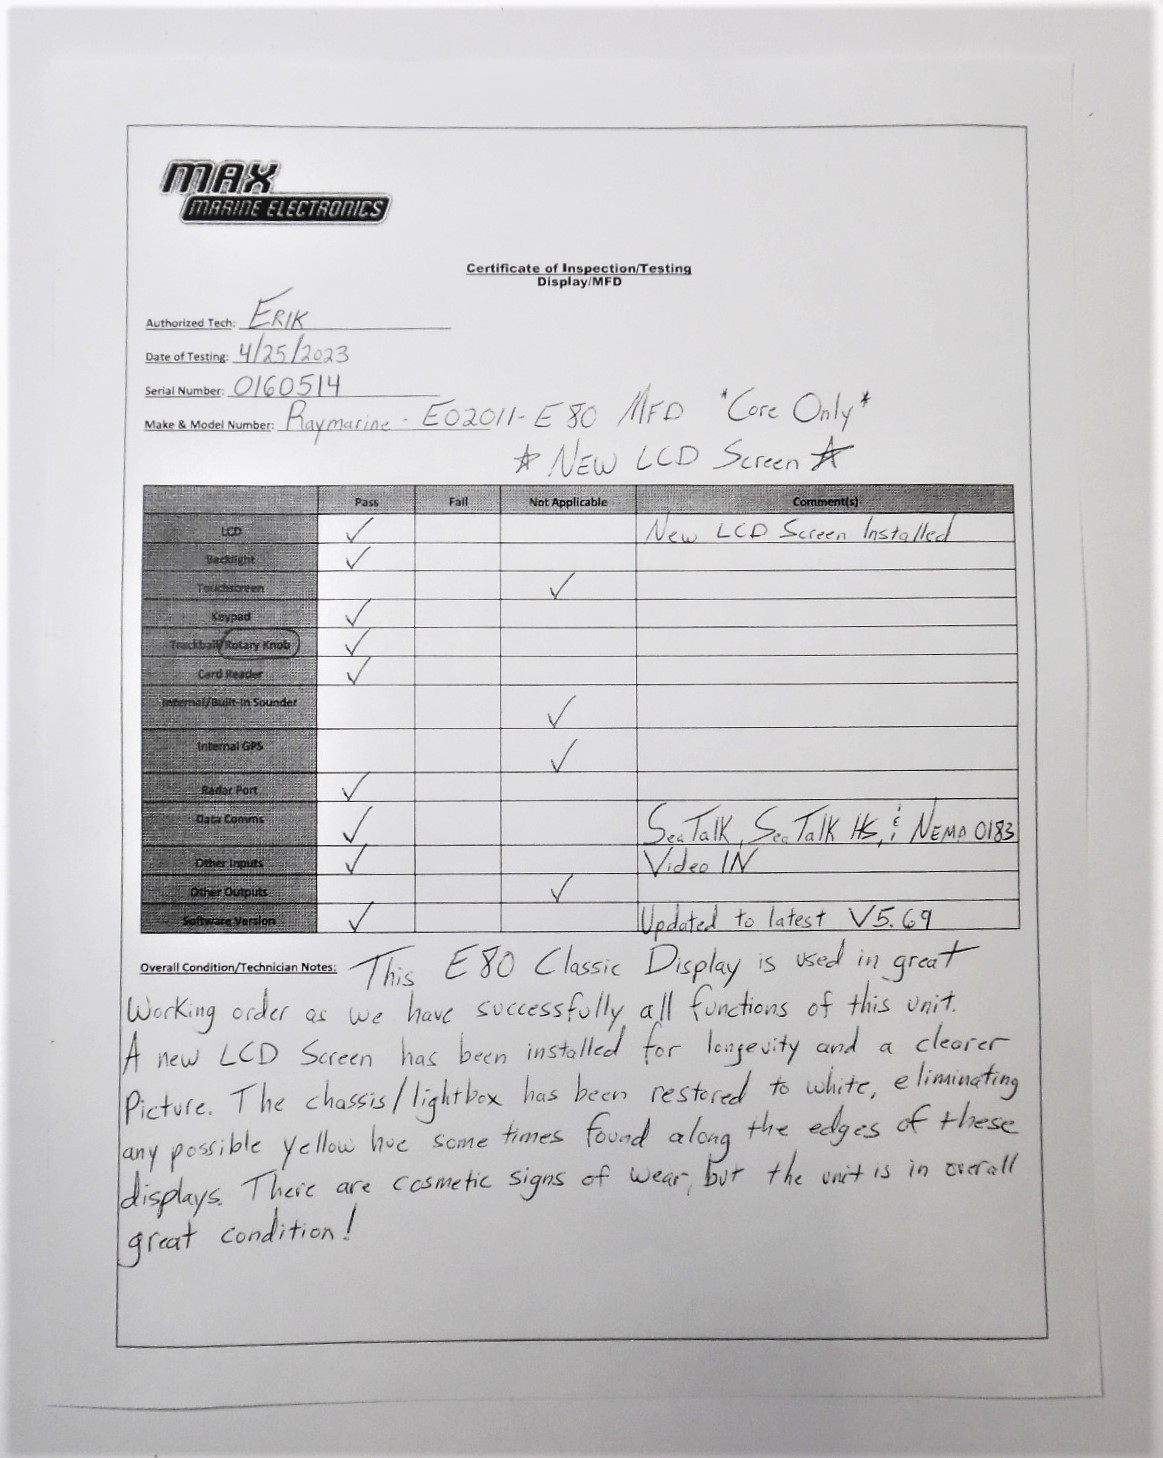 MAX
MARINE ELECTRONICS
Certificate of Inspection/Testing
Display/MFD
Authorized Tech: ERIK
Date of Testing: 4/25/2023
Serial Number: 0160514
Make & Model Number: Raymarine - E02011 - E80 MFD *Core Only*
☆ NEW LCD Screen ☆
Pass Fail Not Applicable Comment(s)
LCD ✓ New LCD Screen Installed
Backlight ✓
Touchscreen ✓
Keypad ✓
Trackball/Rotary Knob ✓
Card Reader ✓
Internal/Built-In Sounder ✓
Internal GPS ✓
Radar Port ✓
Data Comms ✓ SeaTalk, SeaTalk HS, & NEMA 0183
Other Inputs ✓ Video IN
Other Outputs ✓
Software Version ✓ Updated to latest V5.69
Overall Condition/Technician Notes: This E80 Classic Display is used in great
Working order as we have successfully all functions of this unit.
A new LCD Screen has been installed for longevity and a clearer
Picture. The chassis/lightbox has been restored to white, eliminating
any possible yellow hue some times found along the edges of these
displays. There are cosmetic signs of wear, but the unit is in overall
great condition!